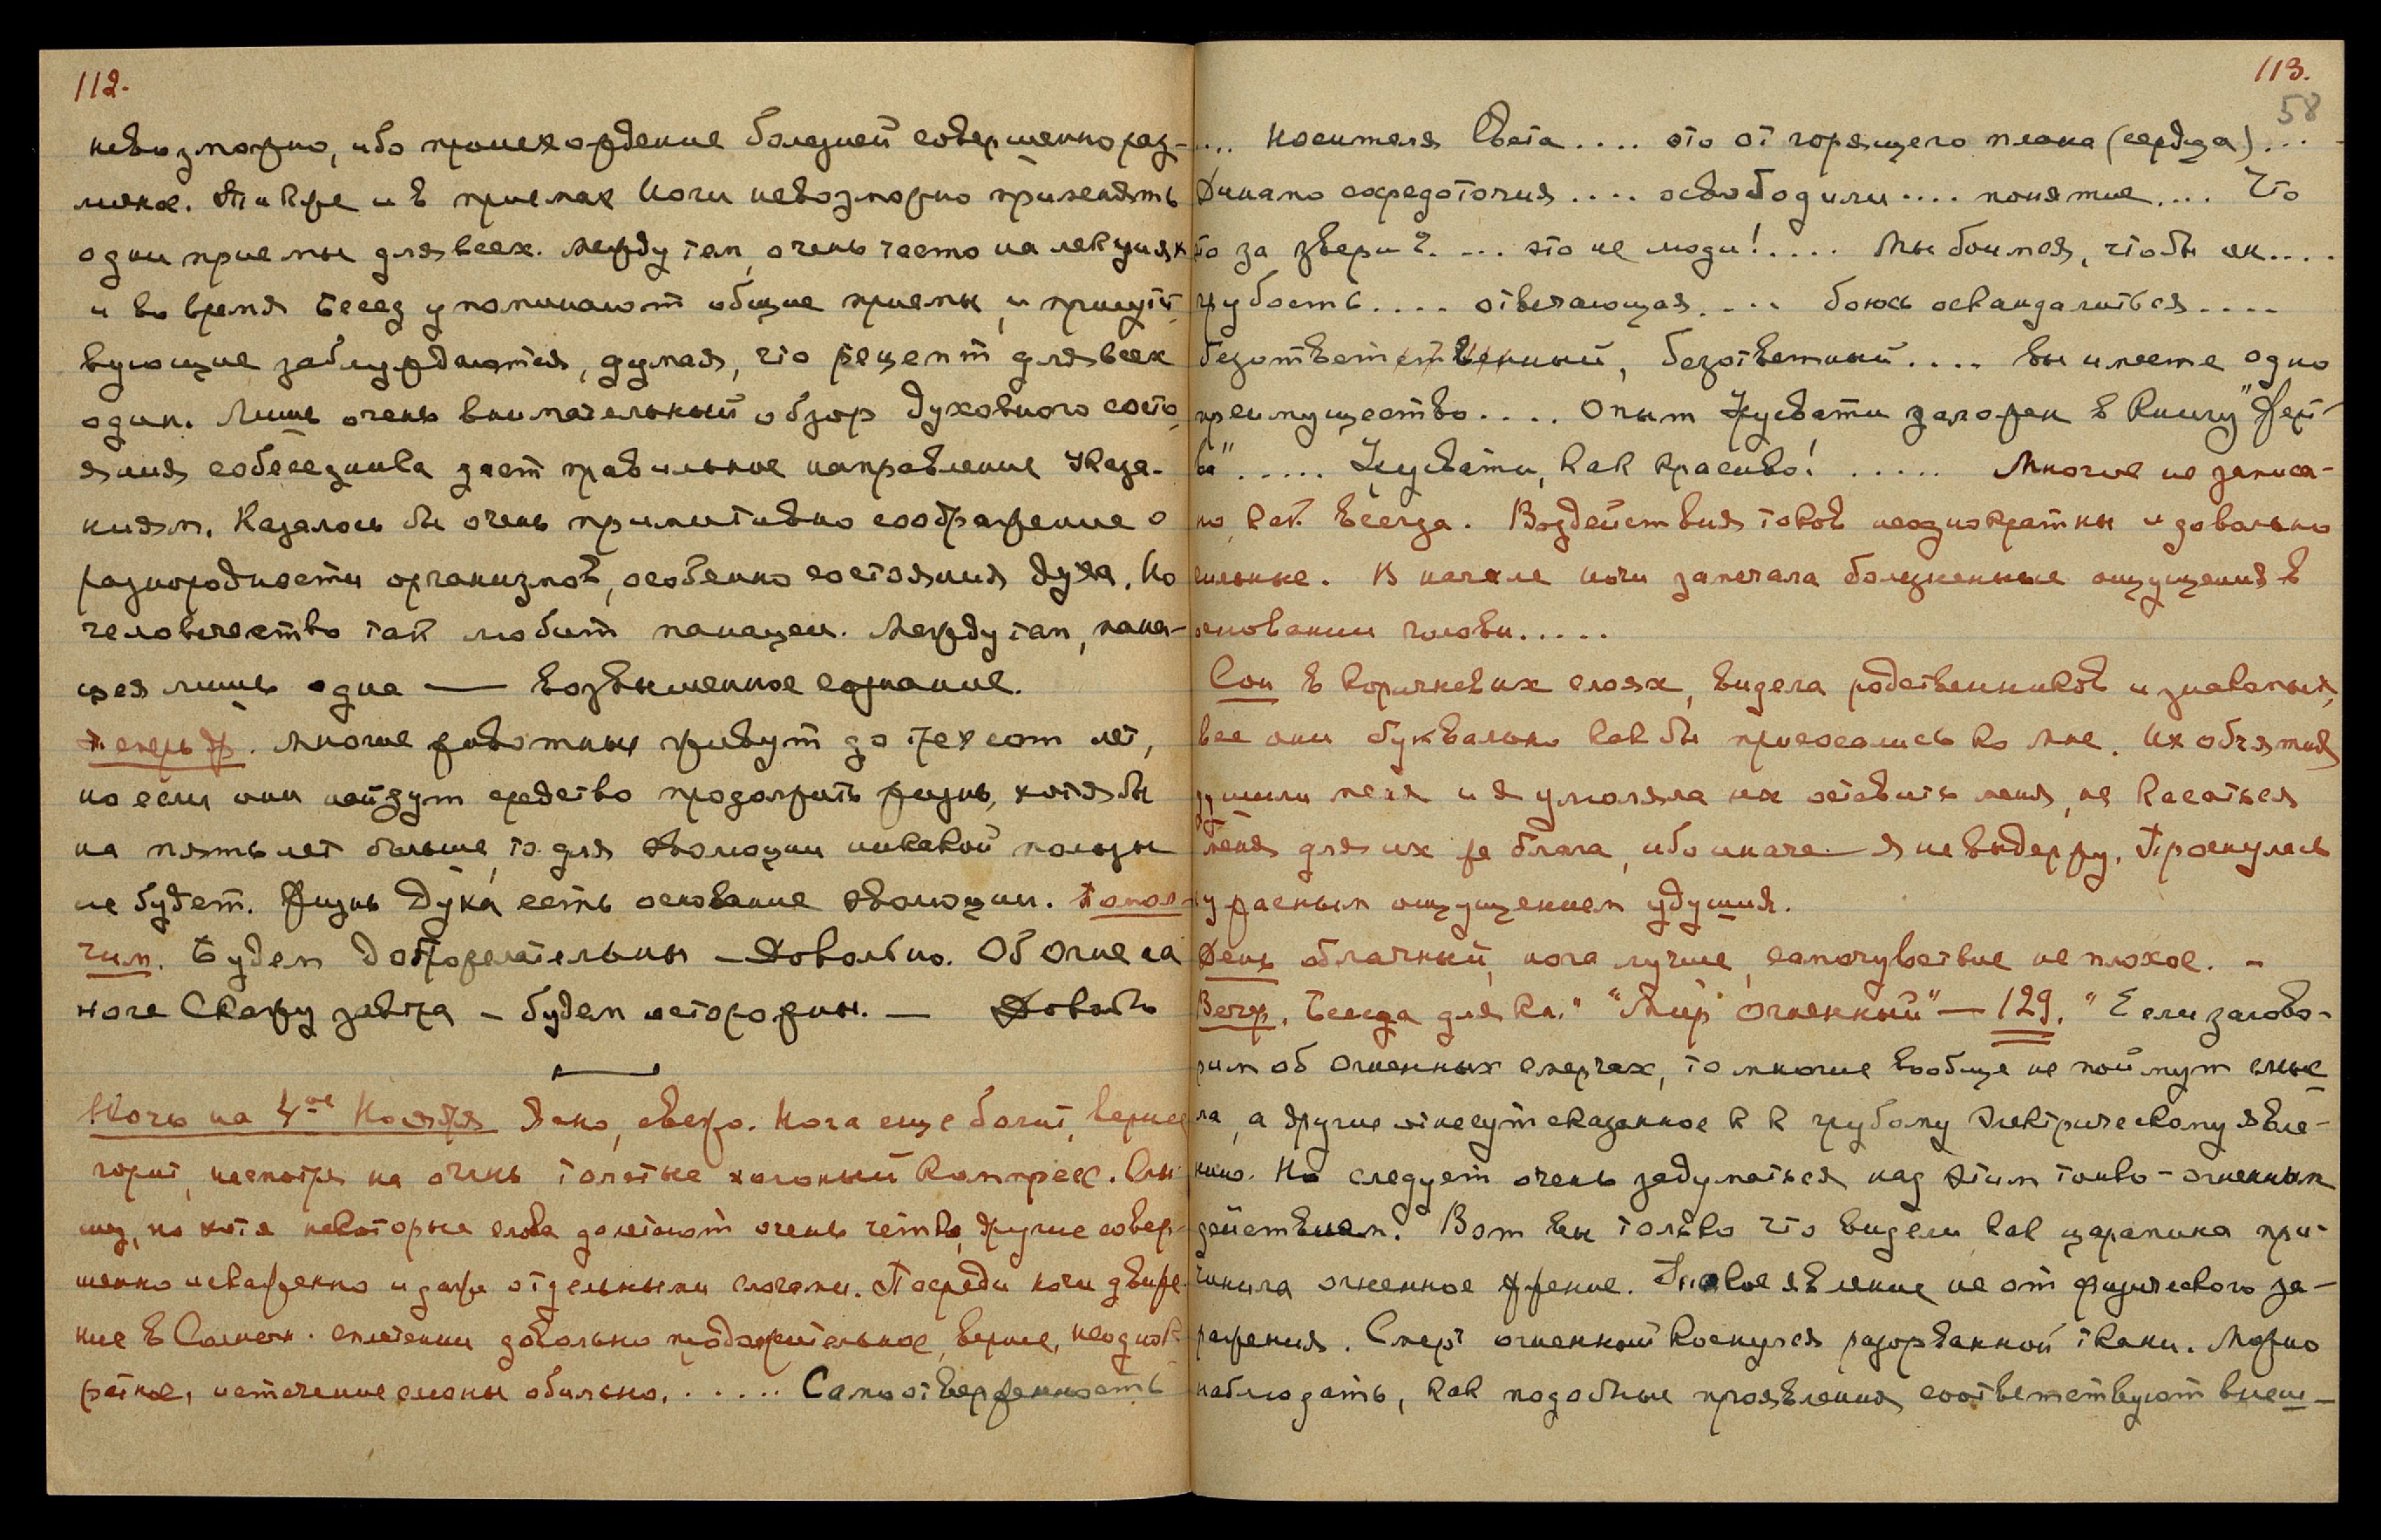 112.
невозможно, ибо происхождение болезней совершенно раз-
личное. Также и в приемах Йоги невозможно применять
одни приемы для всех. Между тем, очень часто на лекциях
и во время бесед упоминают общие приемы, и присутст-
вующие заблуждаются, думая, что рецепт для всех
один. Лишь очень внимательный обзор духовного состо-
яния собеседника дает правильное направление Указа-
ниям. Казалось бы очень примитивно соображение о
разнородности организмов, особенно состояния духа. Но
человечество так любит панацеи. Между тем, пана-
цея лишь одна — возвышенное сознание.
Теперь др. Многие животные живут до трехсот лет,
но если они найдут средство продолжить жизнь, хотя бы
на пять лет больше, то для эволюции никакой пользы
не будет. Жизнь Духа есть основание эволюции. Помол-
чим. Будем доброжелательны — Довольно. Об Огне на
ноге Скажу завтра — будем осторожны. — Довольно
Ночь на 4ое Ноября Ясно, свежо. Нога еще болит, вернее
горит, несмотря на очень частые холодный компресс. Слы
шу, но хотя некоторые слова долетают очень четко, другие совер-
шенно искаженно и даже отдельными слогами. Посреди ночи движе-
ние в Солнечн. сплетении довольно продолжительное, вернее, неоднок
ратное, истечение слюны обильно. ..... Самоотверженность
113.
58
.... Носителя Света .... это от горящего плана (сердца) ...
Динамо средоточия .... освободили .... понятие .... Что
то за звери? .... это не люди! .... Мы боимся, чтобы не ....
грубость .... отвечающая .... боюсь оскандалиться ....
безответственный, безответный .... вы имеете одно
преимущество .... Опыт Урусвати заложен в книгу "Жерт-
ва" ..... Урусвати, как красиво! ..... Многое не записа-
но, как всегда. Воздействия токов неоднократны и довольно
сильные. В начале ночи замечала болезненные ощущения в
основании головы .....
Сон в коричневых слоях, видела родственников и знакомых,
все они буквально как бы присосались ко мне. Их объятия
душили меня и я умоляла их оставить меня, не касаться
меня для их же блага, ибо иначе я не выдержу. Проснулась
с ужасным ощущением удушия.
День облачный, нога лучше, самочувствие не плохое. —
Вечер. Беседа для кн." "Мир Огненный" — 129. "Если загово-
рим об огненных смерчах, то многие вообще не поймут смыс
ла, а другие отнесут сказанное к к грубому электрическому явле-
нию. Но следует очень задуматься над этим тонко-огненным
действием. Вот вы только что видели как царапина при-
чинила огненное жжение. Таковое явление не от физического за-
ражения. Смерч огненный коснулся разорванной ткани. Можно
наблюдать, как подобные проявления соответствуют внеш-